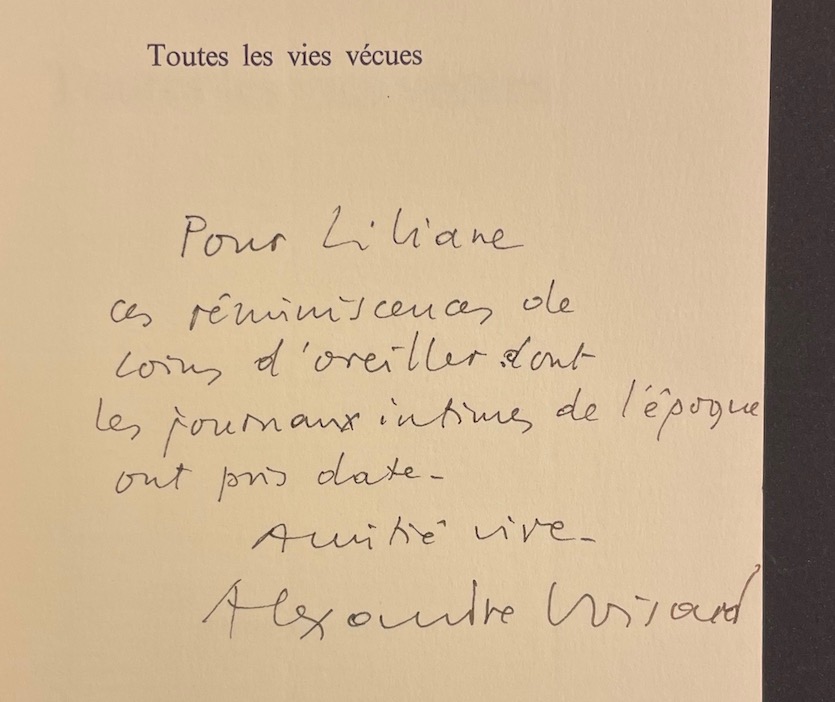 Toutes les vies vécues
Pour Liliane
ces réminiscences de
coins d'oreiller dont
les journaux intimes de l'époque
ont pris date -
Amitié vive -
Alexandre Voisard